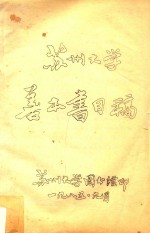 苏州大学
善本書目稿
苏州大学图书馆印
一九八五·九月